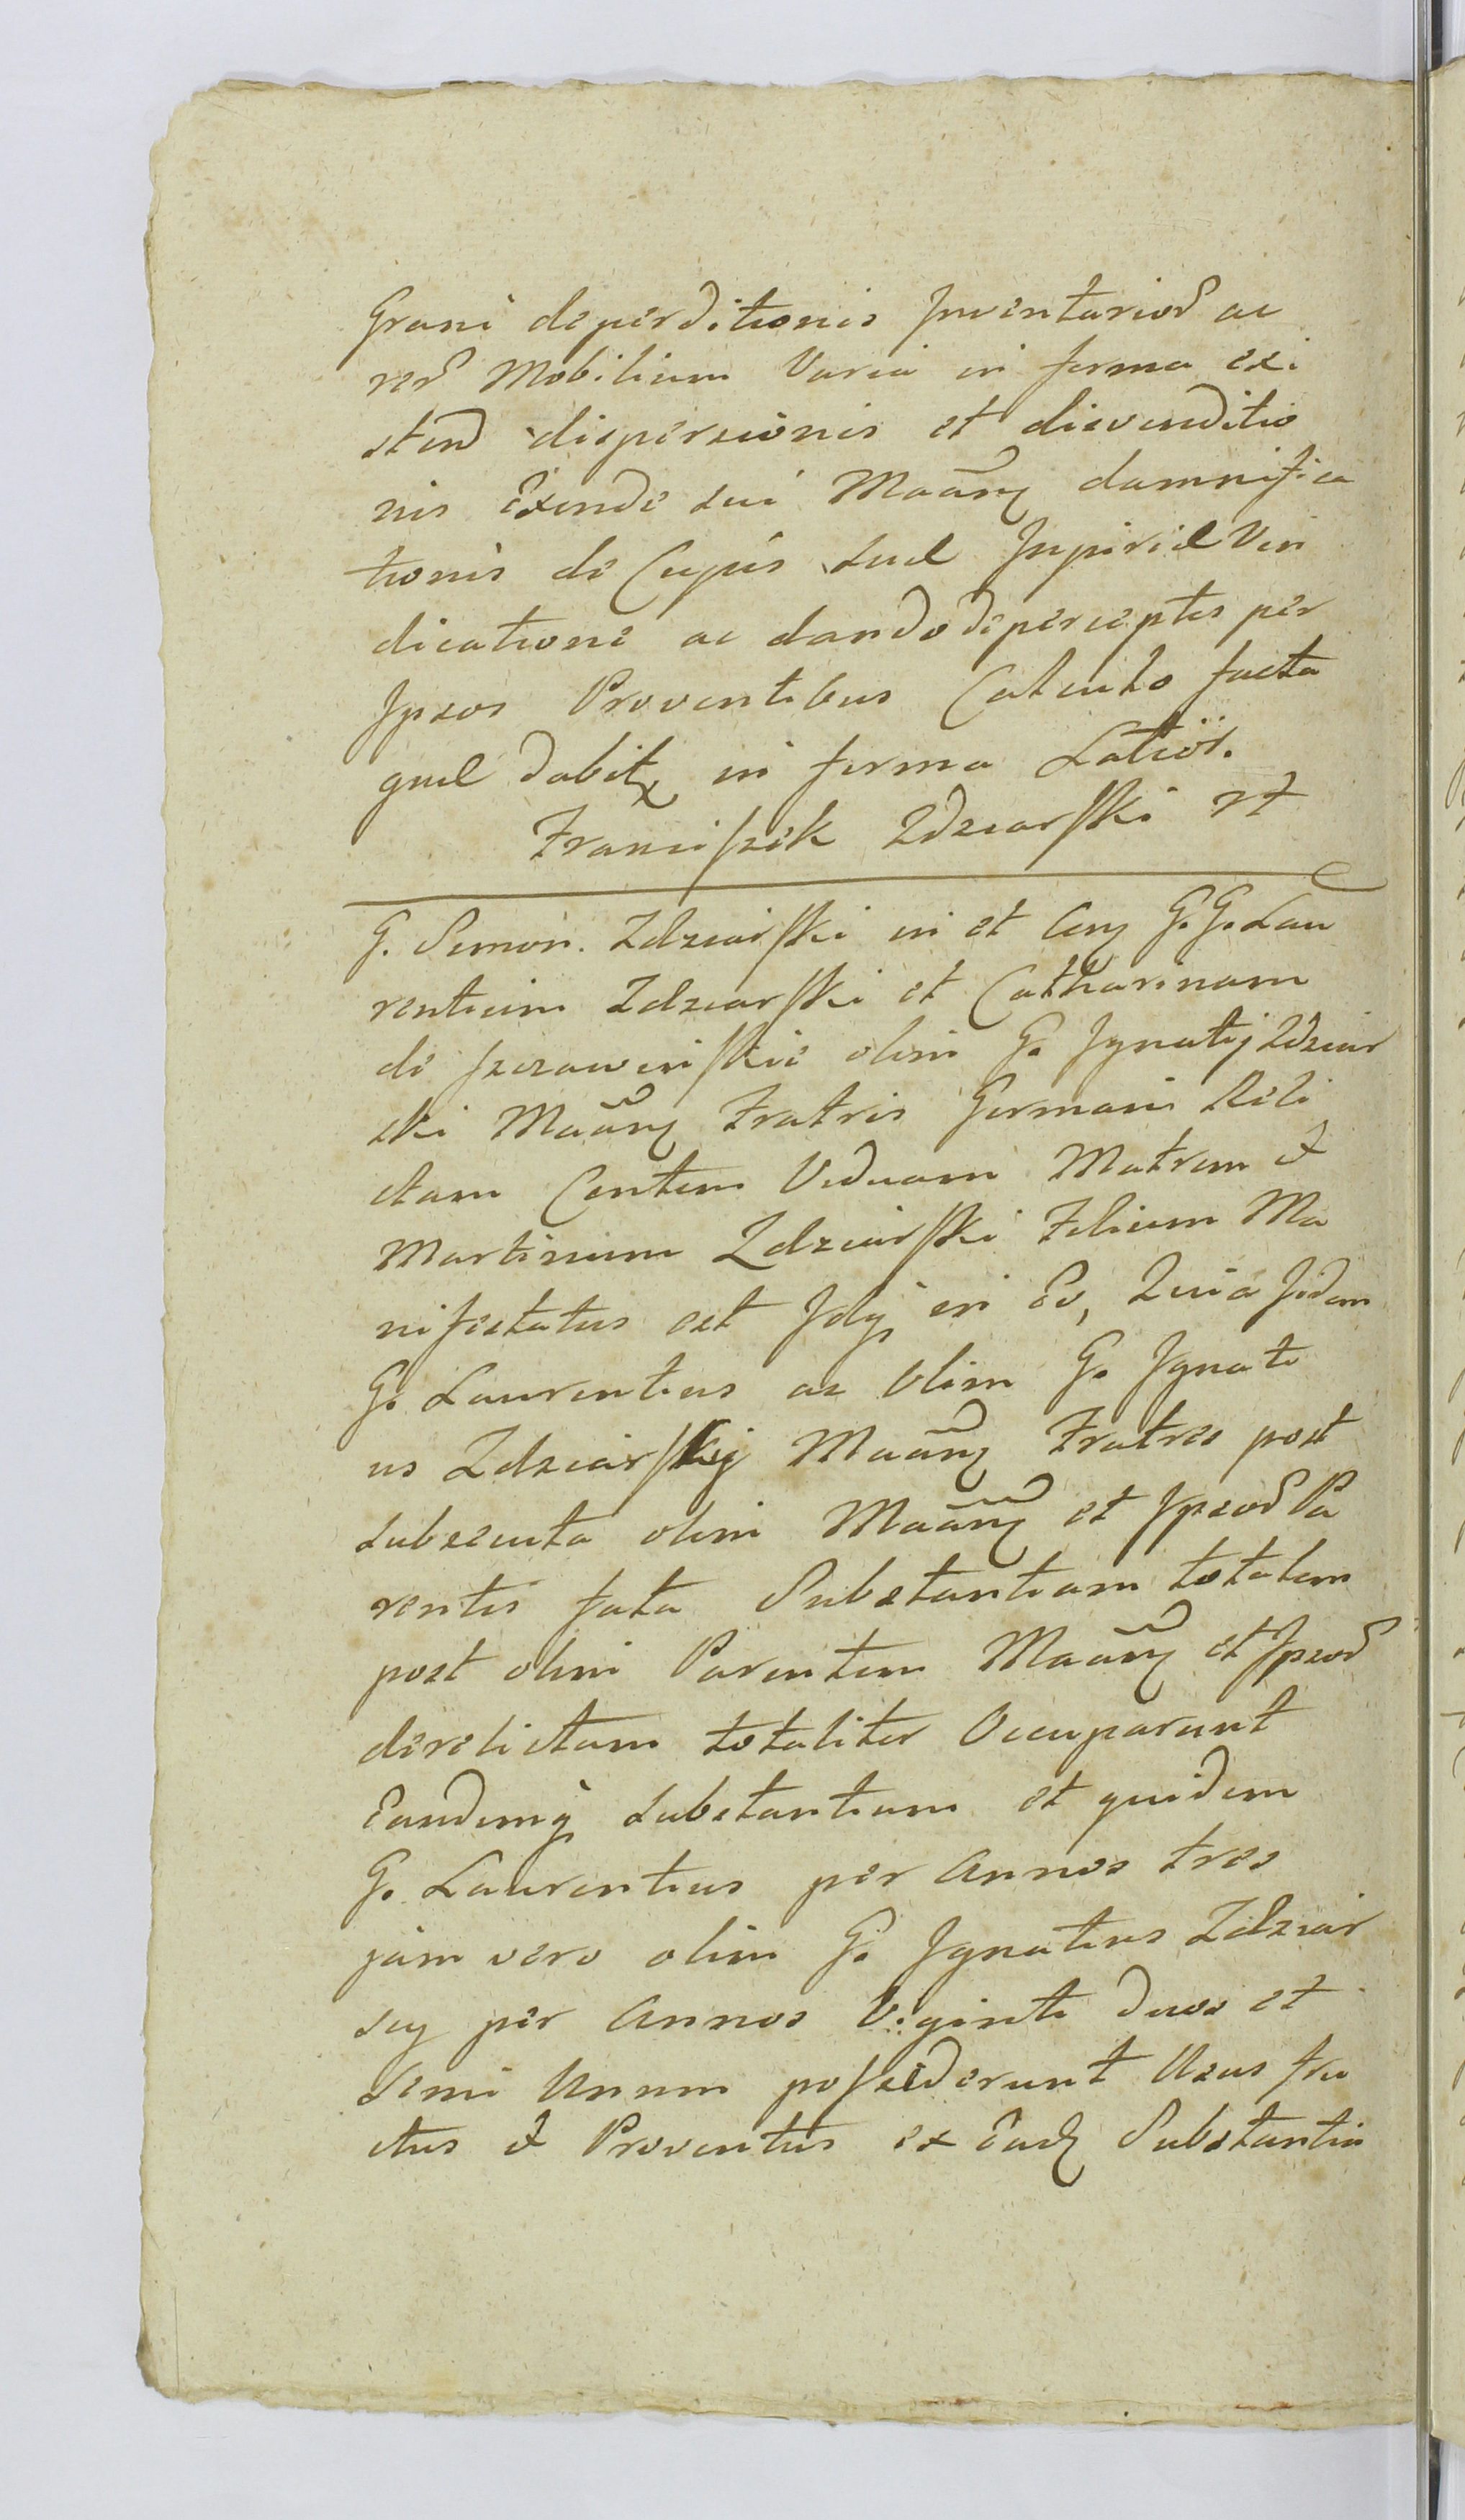 Grani deperditionis Inventarior ac
rer Mobilium Varia in forma exi
stend dispersionis et disvenditio
nis Exinde sui Maãnĝ damnifica
tionis de Cujus sud Juririd Vin
dicatione ac dando de perceptis per
Ipsos Proventibus Calculo facta
qud dabitr in forma Latiör.
Franciszek Zdziarski mp
G. Simon. Zdziarski in et Cnĝ G. G. Lau
rentium Zdziarski et Catharinam
de Szczawinskie olim G. Ignatij Zdziar
ski Maãnĝ Fratris Germani Reli
ctam Contem Viduam Matrem &
Martinum Zdziarski Filium Ma
nifestatus est Idq; in Eo, Quia Iidem
G. Laurentius ac olim G. Ignati
us Zdziarskij Maãnĝ Fratres post
subsecuta olim Maãnĝ et Ipsor Pa
rentis fata Substantiam totalem
post olim Parentem Maãnĝ et Ipsor
derelictam totaliter Occuparunt
Eandemq; substantiam et quidem
G. Laurentius per Annos tres
jam vero olim G. Ignatius Zdziar
scy per Annos Viginti duos et
semi Unum possederunt Usus fru
ctus & Proventus ex Eadĝ Substantia